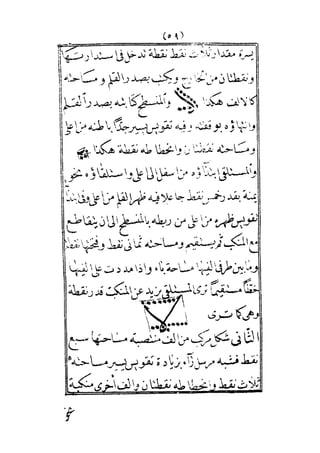 (٥٩)
يسرة مقدار ثلاث نقط نقطة تدخل فى استدارتها
ونقطتان من الخارج ويكتب بصدر القلم ومساحته
كالالف هكذا والمنسطح كتابته بصدر القلم
وانتهاؤه بوقفته وفيه تقويس يسير جدًا باطنه من اعلى
ومساحته نقطتان وانحطاطه نقطة هكذا
والمستلقى ابتداؤه من اسفل الى اعلى واستلقاؤه نحو
يمنة بقدر خمس نقط جاعلا فيه ظهر القلم من اعلى وفى ابتدا
تقويس ظهره من اعلى من ربطه بالمنسطح الى ان يتقاطع
مع المنكب ثم يستقيم ومساحته ثمانى نقط وفتحتها نقطة
وما بين طرفى الفيها مساحة باء واذا مددت على الفيها
خطًا مستقيمًا ترى المستلقى يزيد عن المنكب قدر نقطة
وهى كما ترى
الثانى شكل مركب من الف منتصبة مساحتها سبع
نقط فشبه مرسل راء بزيادة تقويس يسير مساحته
ثلاث نقط وانحطاطه نقطتان والف اخرى منكبة